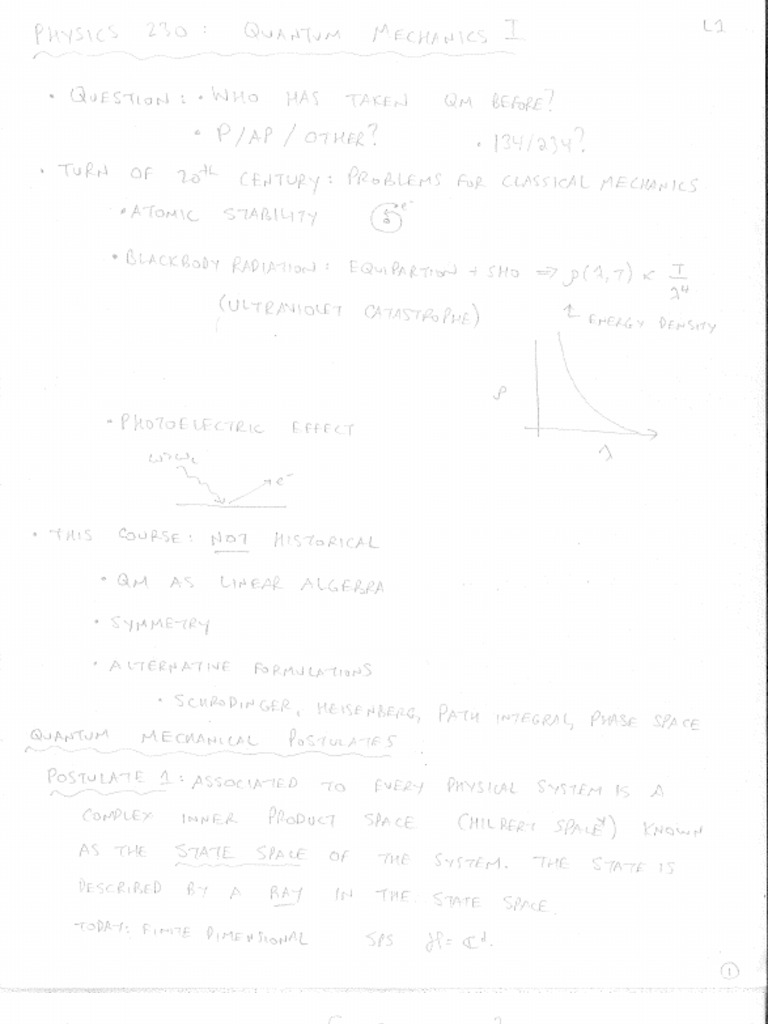 PHYSICS 230: QUANTUM MECHANICS I
L1
• QUESTION: • WHO HAS TAKEN QM BEFORE?
• P/AP/OTHER? • 134/234?
• TURN OF 20th CENTURY: PROBLEMS FOR CLASSICAL MECHANICS
• ATOMIC STABILITY e-
• BLACKBODY RADIATION: EQUIPARTION + SHO ⇒ ρ(λ,T) ∝ T/λ^4
(ULTRAVIOLET CATASTROPHE)
ENERGY DENSITY
ρ
λ
• PHOTOELECTRIC EFFECT
e-
• THIS COURSE: NOT HISTORICAL
• QM AS LINEAR ALGEBRA
• SYMMETRY
• ALTERNATIVE FORMULATIONS
• SCHRODINGER, HEISENBERG, PATH INTEGRAL, PHASE SPACE
QUANTUM MECHANICAL POSTULATES
POSTULATE 1: ASSOCIATED TO EVERY PHYSICAL SYSTEM IS A
COMPLEX INNER PRODUCT SPACE (HILBERT SPACE*) KNOWN
AS THE STATE SPACE OF THE SYSTEM. THE STATE IS
DESCRIBED BY A RAY IN THE STATE SPACE.
TODAY: FINITE DIMENSIONAL SPS ℋ = ℂ^d.
1